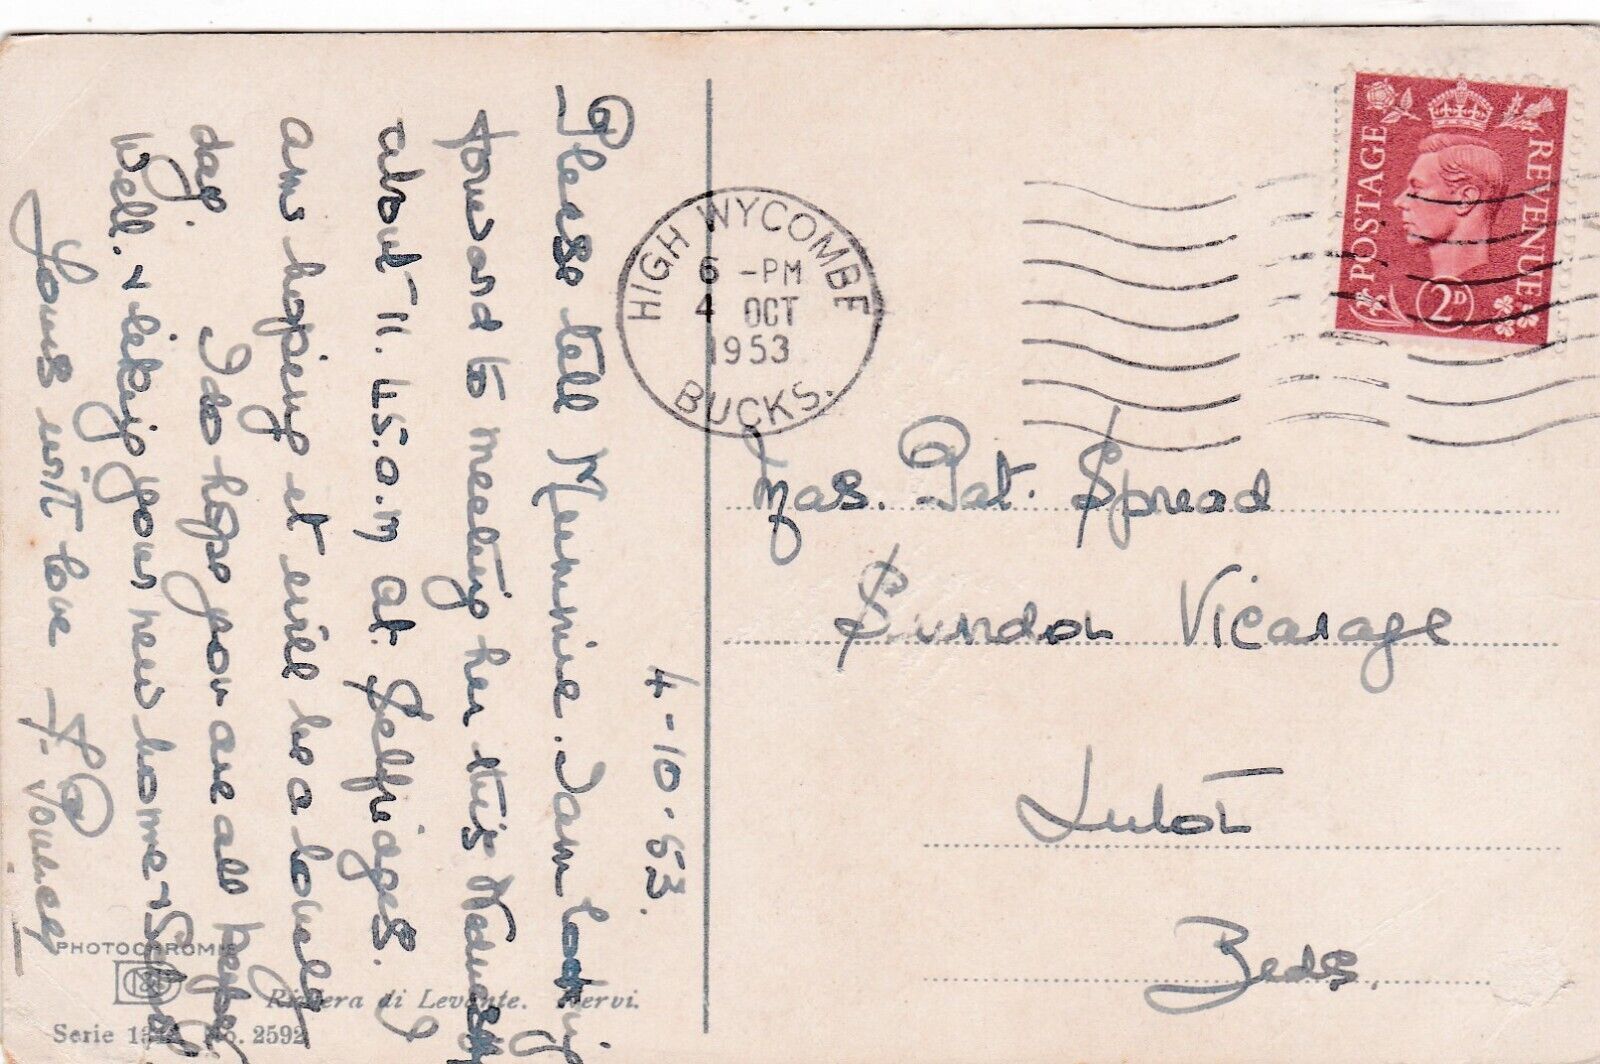 4-10-53.
Please tell Mummie. I am looking
forward to meeting her this Wednesday
about 11.45.a.m at Selfridges.
am hoping it will be a lovely
day. I do hope you are all keeping
well. & liking your new home &
Yours with love
HIGH WYCOMBE
6 -PM
4 OCT
1953
BUCKS.
POSTAGE
REVENUE
2D
Mas. Pat. Spread
Sundon Vicarage
Luton
Beds.
PHOTOCHROMIE
Riviera di Levante. Nervi.
Serie No. 2592